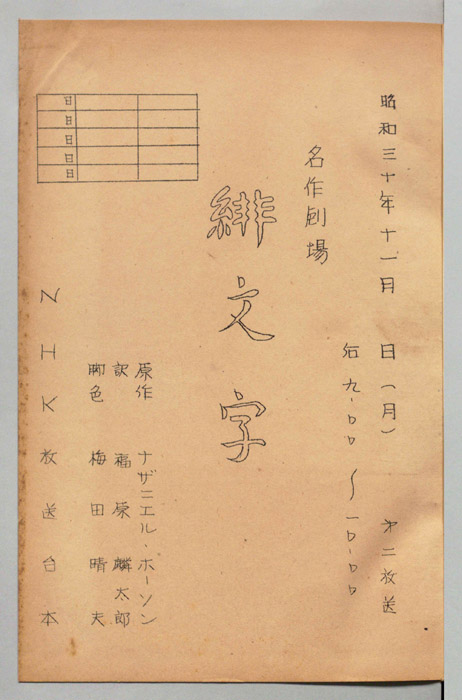 昭和三十年十一月　日（月）　第二放送
后九・〇〇～一〇・〇〇
名作劇場
緋文字
原作　ナザニエル・ホーソン
訳　福原麟太郎
脚色　梅田晴夫
日
日
日
日
日
NHK放送台本